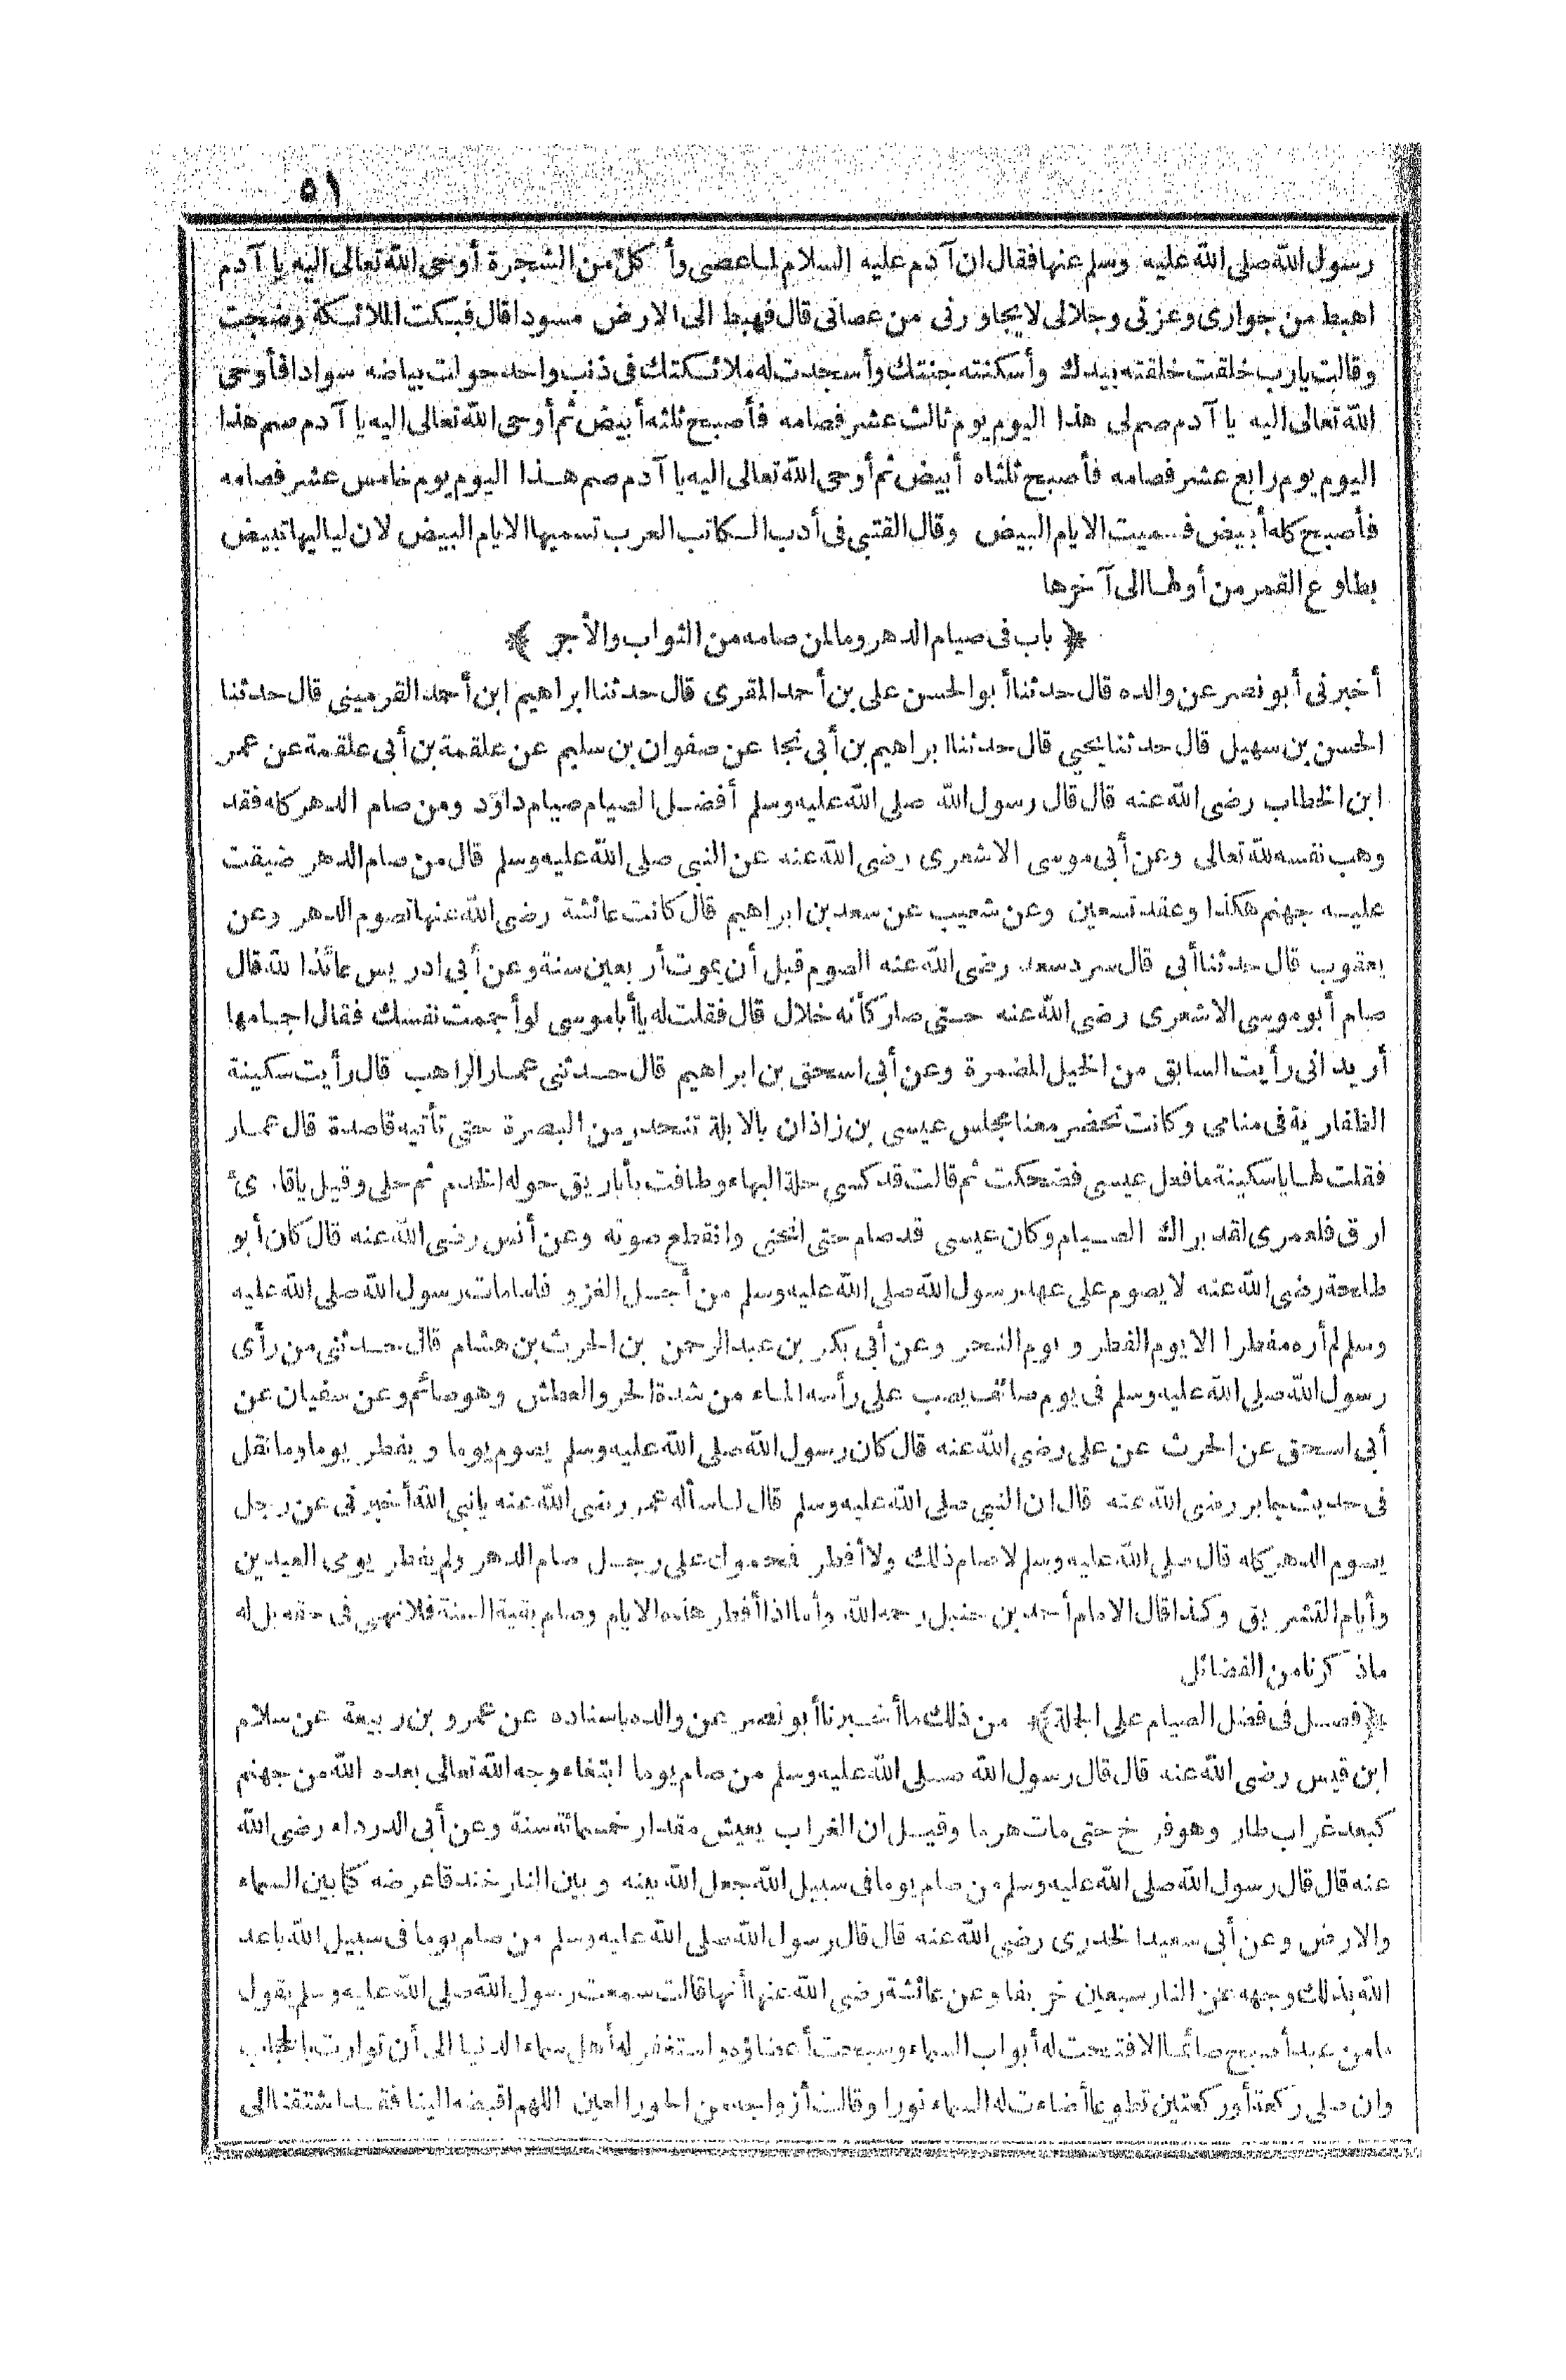 ٥١
رسول الله صلى الله عليه وسلم عنها فقال ان آدم عليه السلام لما عصى وأكل من الشجرة أوحى الله تعالى اليه يا آدم
اهبط من جوارى وعزتى وجلالى لا يجاورنى من عصانى قال فهبط الى الارض مسودا قال فبكت الملائكة وضجت
وقالت يارب خلقت خلقته بيدك وأسكنته جنتك وأسجدت له ملائكتك فى ذنب واحد حولت بياضه سوادا فأوحى
الله تعالى اليه يا آدم صم لى هذا اليوم يوم ثالث عشر فصامه فأصبح ثلثه أبيض ثم أوحى الله تعالى اليه يا آدم صم هذا
اليوم يوم رابع عشر فصامه فأصبح ثلثاه أبيض ثم أوحى الله تعالى اليه يا آدم صم هذا اليوم يوم خامس عشر فصامه
فأصبح كله أبيض فسميت الايام البيض وقال القتبى فى أدب الكاتب العرب تسميها الايام البيض لان لياليها تبيض
بطلوع القمر من أولها الى آخرها
﴿ باب فى صيام الدهر وما لمن صامه من الثواب والأجر ﴾
أخبرنى أبو نصر عن والده قال حدثنا أبو الحسن على بن أحمد المقرى قال حدثنا ابراهيم ابن أحمد القرميسنى قال حدثنا
الحسن بن سهيل قال حدثنا يحيى قال حدثنا ابراهيم بن أبى نجا عن صفوان بن سليم عن علقمة بن أبى علقمة عن عمر
ابن الخطاب رضى الله عنه قال قال رسول الله صلى الله عليه وسلم أفضل الصيام صيام داود ومن صام الدهر كله فقد
وهب نفسه لله تعالى وعن أبى موسى الاشعرى رضى الله عنه عن النبى صلى الله عليه وسلم قال من صام الدهر ضيقت
عليه جهنم هكذا وعقد تسعين وعن شعيب عن سعد بن ابراهيم قال كانت عائشة رضى الله عنها تصوم الدهر وعن
يعقوب قال حدثنا أبى قال سرد سعد رضى الله عنه الصوم قبل أن يموت أربعين سنة وعن أبى ادريس عائذ الله قال
صام أبو موسى الاشعرى رضى الله عنه حتى صار كأنه خلال قال فقلت له يا أبا موسى لو أجممت نفسك فقال اجمامها
أريد انى رأيت السابق من الخيل المضمرة وعن أبى اسحق بن ابراهيم قال حدثنى عمار الراهب قال رأيت سكينة
الظفارية فى منامى وكانت تحضر معنا مجلس عيسى بن زاذان بالابلة تنحدر من البصرة حتى تأتيه قاصدة قال عمار
فقلت لها يا سكينة ما فعل عيسى فضحكت ثم قالت قد كسى حلة البهاء وطافت بأباريق حوله الخدم ثم حلى وقيل يا قارئ
ارق فلعمرى لقد براك الصيام وكان عيسى قد صام حتى انحنى وانقطع صوته وعن أنس رضى الله عنه قال كان أبو
طلحة رضى الله عنه لا يصوم على عهد رسول الله صلى الله عليه وسلم من أجل الغزو فلما مات رسول الله صلى الله عليه
وسلم لم أره مفطرا الا يوم الفطر ويوم النحر وعن أبى بكر بن عبد الرحمن بن الحرث بن هشام قال حدثنى من رأى
رسول الله صلى الله عليه وسلم فى يوم صائف يصب على رأسه الماء من شدة الحر والعطش وهو صائم وعن سفيان عن
أبى اسحق عن الحرث عن على رضى الله عنه قال كان رسول الله صلى الله عليه وسلم يصوم يوما ويفطر يوما وما نقل
فى حديث جابر رضى الله عنه قال ان النبى صلى الله عليه وسلم قال لما سأله عمر رضى الله عنه يانبى الله أخبرنى عن رجل
يصوم الدهر كله قال صلى الله عليه وسلم لا صام ذلك ولا أفطر فمحمول على رجل صام الدهر ولم يفطر يومى العيدين
وأيام التشريق وكذا قال الامام أحمد بن حنبل رحمه الله وأما اذا أفطر هذه الايام وصام بقية السنة فلا نهى فى حقه بل له
ما ذكرنا من الفضائل
﴿فصل فى فضل الصيام على الجملة﴾ من ذلك ما أخبرنا أبو نصر عن والده باسناده عن عمرو بن ربيعة عن سلام
ابن قيس رضى الله عنه قال قال رسول الله صلى الله عليه وسلم من صام يوما ابتغاء وجه الله تعالى بعده الله من جهنم
كبعد غراب طار وهو فرخ حتى مات هرما وقيل ان الغراب يعيش مقدار خمسمائة سنة وعن أبى الدرداء رضى الله
عنه قال قال رسول الله صلى الله عليه وسلم من صام يوما فى سبيل الله جعل الله بينه وبين النار خندقا عرضه كما بين السماء
والارض وعن أبى سعيد الخدرى رضى الله عنه قال قال رسول الله صلى الله عليه وسلم من صام يوما فى سبيل الله باعد
الله بذلك وجهه عن النار سبعين خريفا وعن عائشة رضى الله عنها أنها قالت سمعت رسول الله صلى الله عليه وسلم يقول
ما من عبد أصبح صائما الا فتحت له أبواب السماء وسبحت أعضاؤه واستغفر له أهل سماء الدنيا الى أن توارت بالحجاب
وان صلى ركعة أو ركعتين تطوعا أضاءت له السماء نورا وقالت أزواجه من الحور العين اللهم اقبضه الينا فقد اشتقنا الى